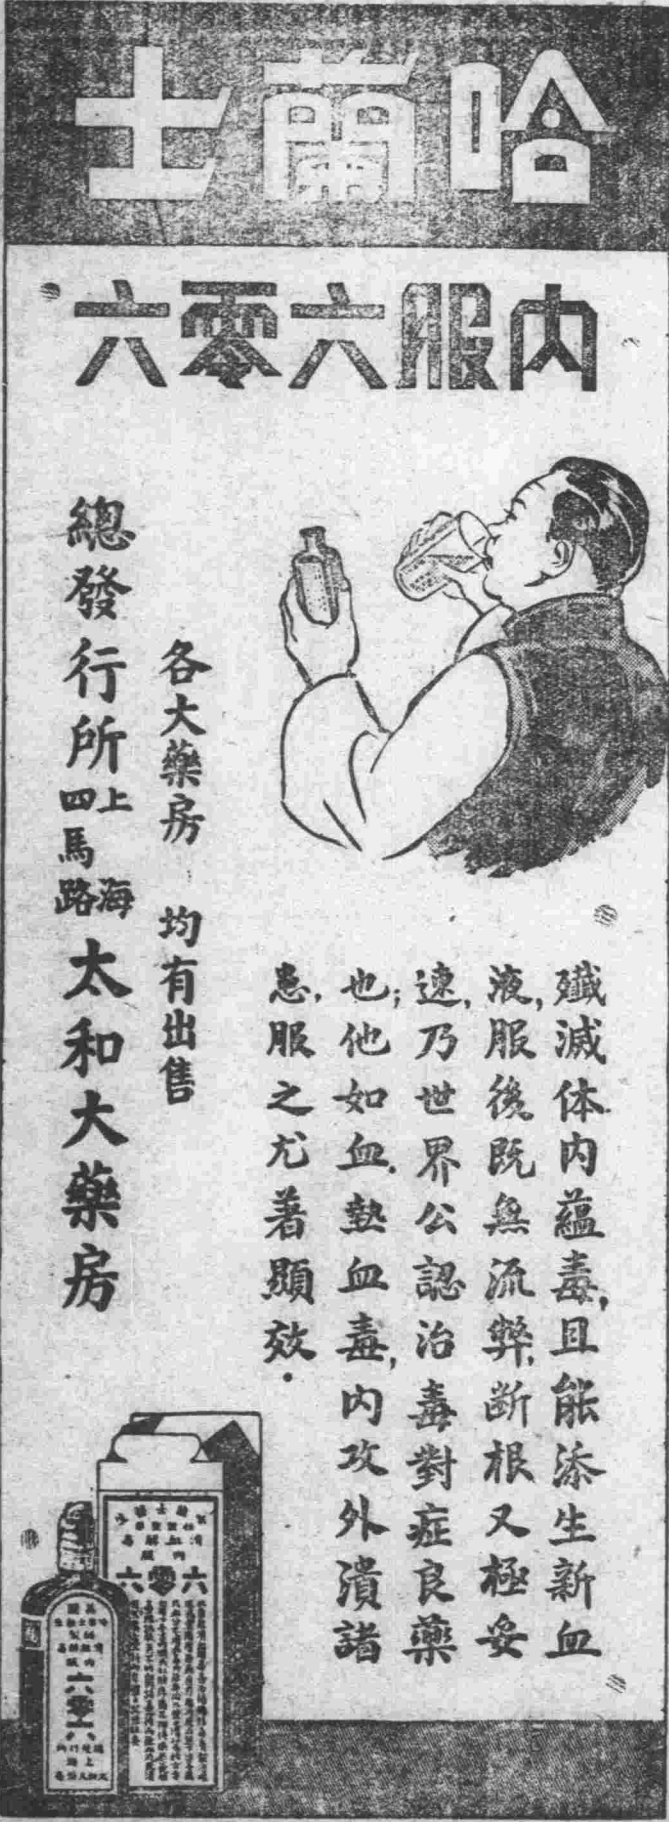 哈蘭士
內服六零六
殲滅体内蘊毒,且能添生新血
液,服後既無流弊,断根又極妥
速,乃世界公認治毒對症良藥
也;他如血熱血毒,内攻外潰諸
患,服之尤著顯效.
各大藥房 均有出售
總發行所上海四馬路太和大藥房
六零六
六零六